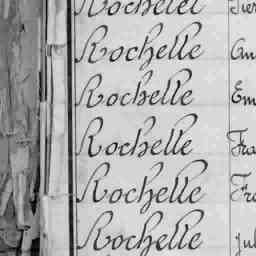 Rochelet
Rochelle An
Rochelle Em
Rochelle Fra
Rochelle Fra
Rochelle Jul